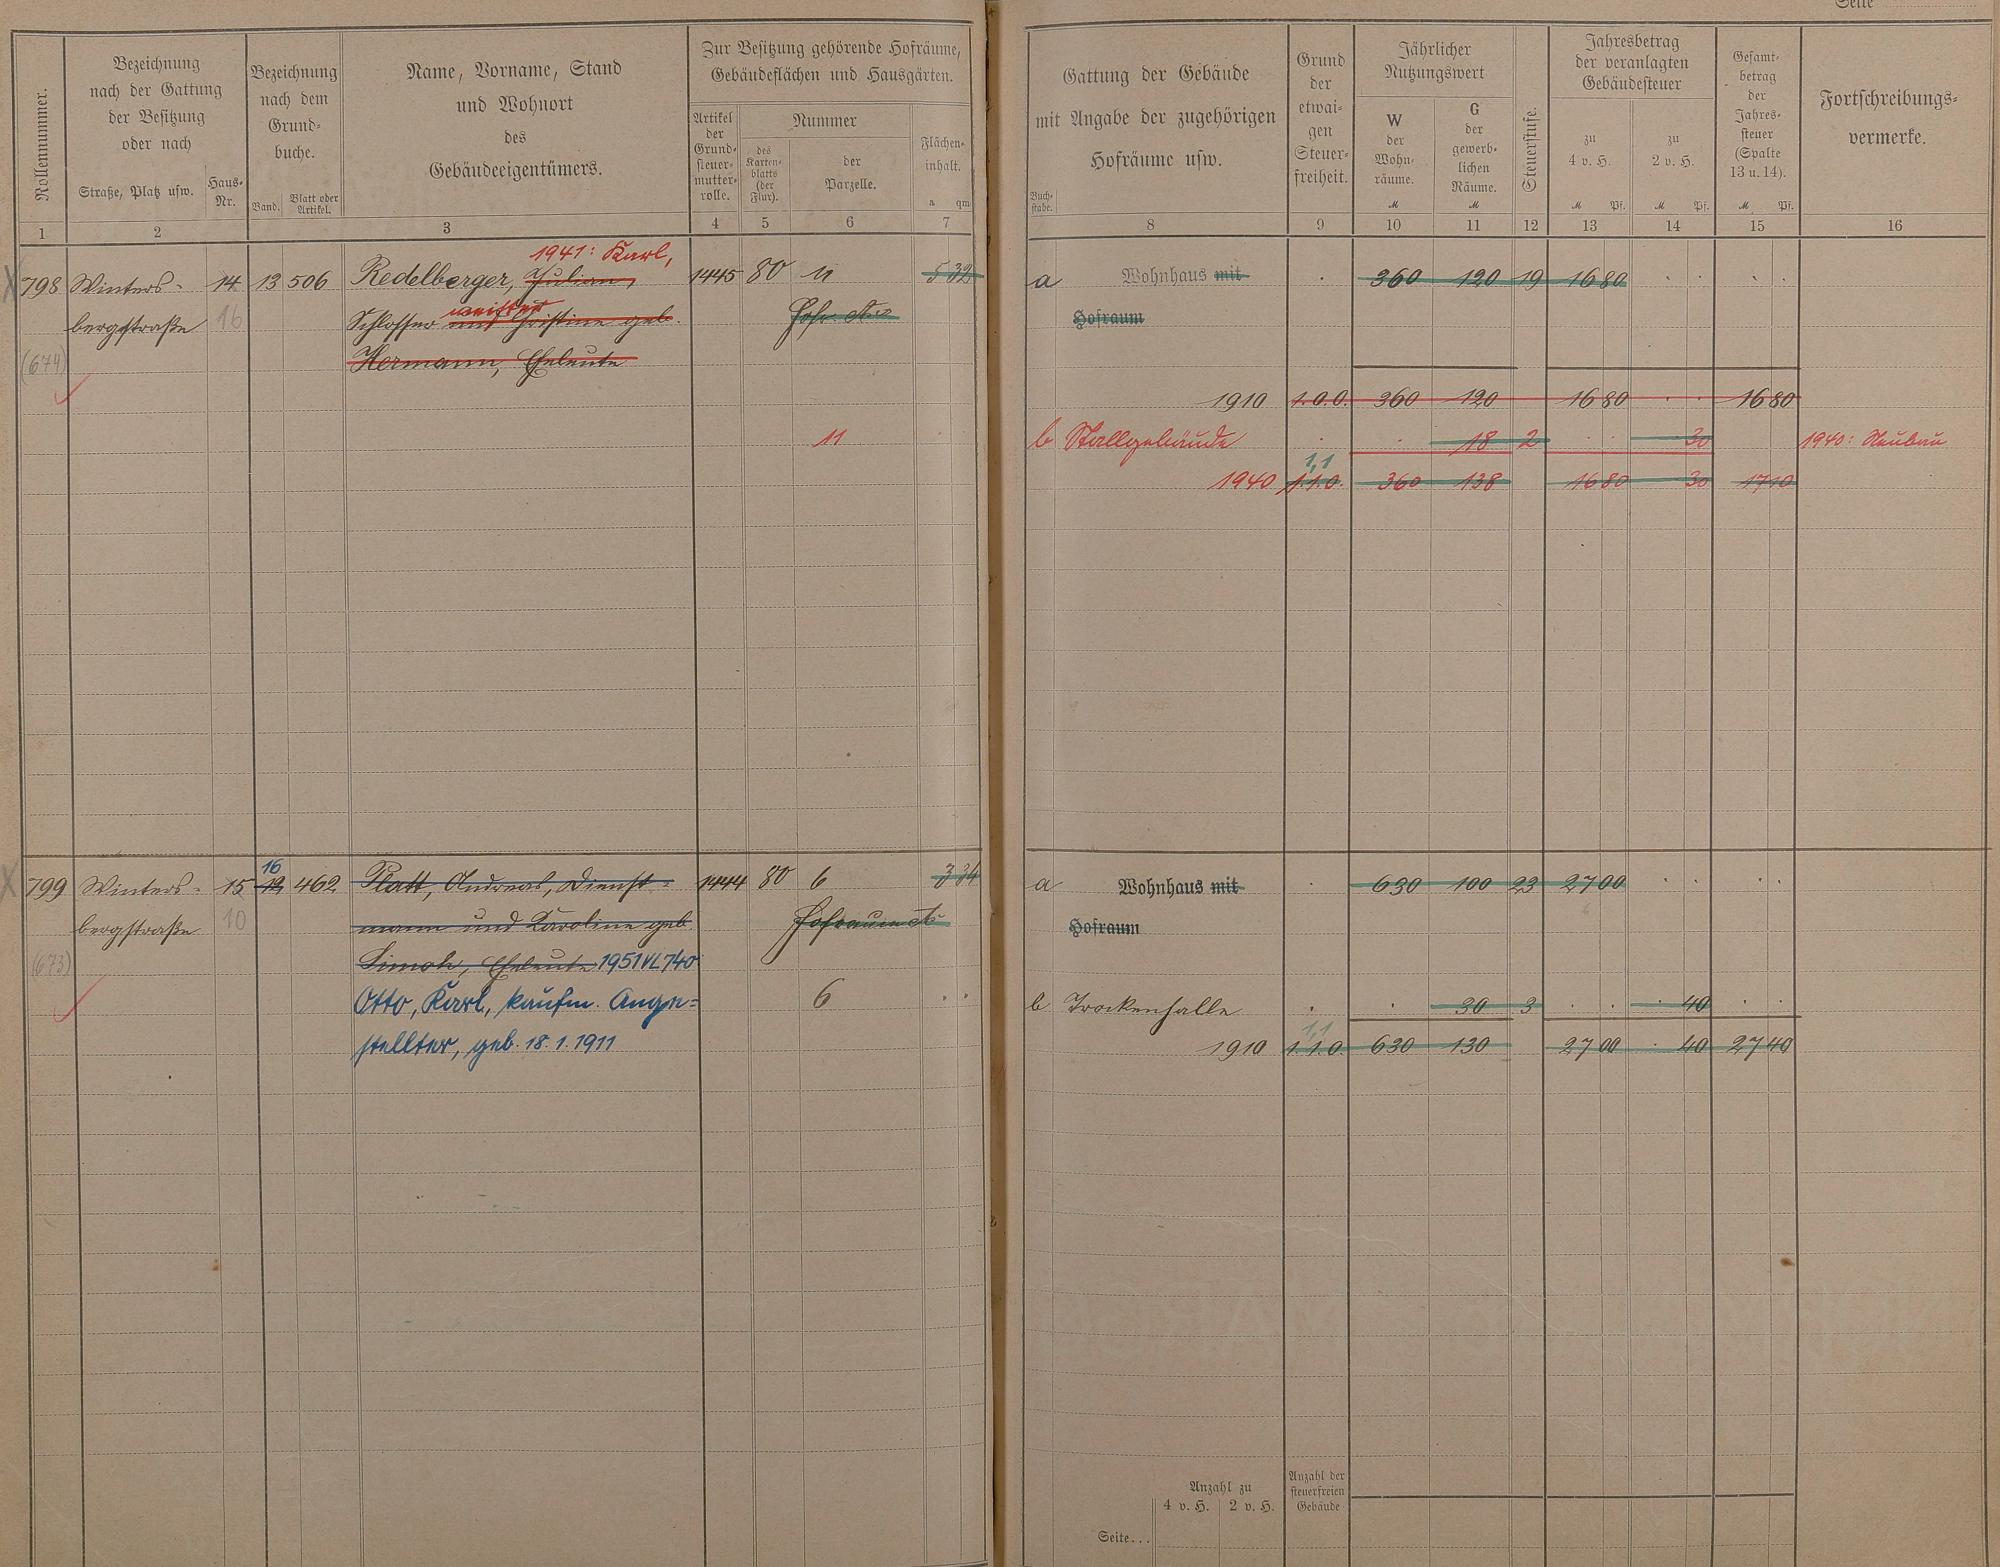 Seite
Rollennummer.
Bezeichnung
nach der Gattung
der Besitzung
oder nach
Straße, Platz usw.
Haus-
Nr.
Bezeichnung
nach dem
Grund-
buche.
Band.
Blatt oder
Artikel.
Name, Vorname, Stand
und Wohnort
des
Gebäudeeigentümers.
Zur Besitzung gehörende Hofräume,
Gebäudeflächen und Hausgärten.
Artikel
der
Grund-
steuer-
mutter-
rolle.
Nummer
des
Karten-
blatts
(der
Flur).
der
Parzelle.
Flächen-
inhalt.
a qm
Buch-
stabe.
Gattung der Gebäude
mit Angabe der zugehörigen
Hofräume usw.
Grund
der
etwai-
gen
Steuer-
freiheit.
Jährlicher
Nutzungswert
W
der
Wohn-
räume.
M
G
der
gewerb-
lichen
Räume.
M
Steuerstufe.
Jahresbetrag
der veranlagten
Gebäudesteuer
zu
4 v. H.
M Pf.
zu
2 v. H.
M Pf.
Gesamt-
betrag
der
Jahres-
steuer
(Spalte
13 u. 14).
M Pf.
Fortschreibungs-
vermerke.
1 2 3 4 5 6 7 8 9 10 11 12 13 14 15 16
1941: Karl,
798 Winters- 14 13 506 Redelberger, Julian, 1445 80 11 5 32 a Wohnhaus mit 360 120 19 16 80
bergstraße 16 Schlosser und Christine geb. Hofr. Hofraum
(674) Hermann, Eheleute
1910 1.0.0. 360 120 16 80 16 80
11 b Stallgebäude 18 2 30 1940: Neubau
1,1
1940 1.1.0. 360 138 16 80 30 17 10
16
799 Winters- 15 12 462 Platt, Andreas, Dienst- 1444 80 6 3 34 a Wohnhaus mit 630 100 23 27 00
bergstraße 10 mann und Karoline geb. Hofraum Hofraum
(673) Eheleute 1951 VL 740
Otto, Karl, kaufm. Ange- 6 b Trockenhalle 30 3 40
1,1
stellter, geb. 18. 1. 1911 1910 1.1.0. 630 130 27 00 40 27 40
Anzahl zu
4 v. H. 2 v. H.
Anzahl der
steuerfreien
Gebäude
Seite...